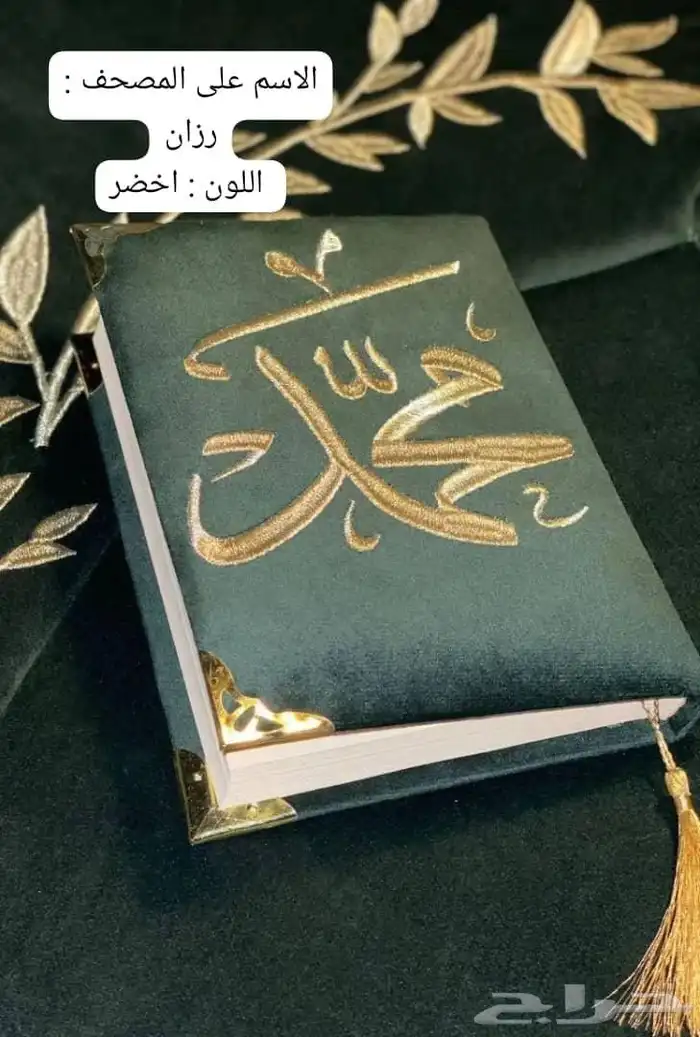 الاسم على المصحف :
رزان
اللون : اخضر
محمد
حراج